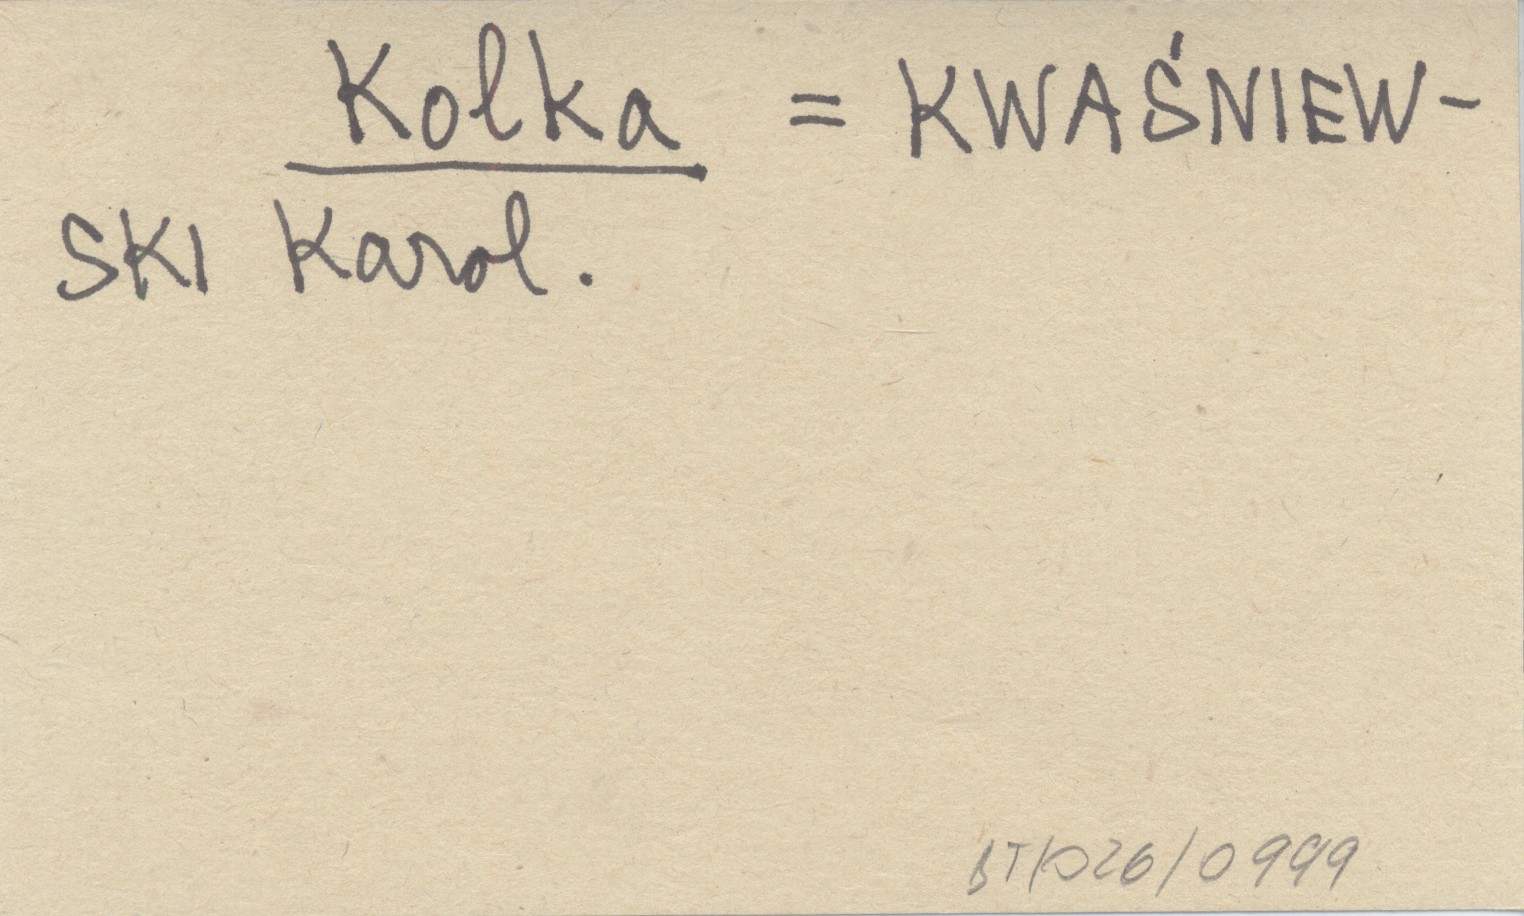 Kolka = KWAŚNIEW-
SKI Karol.
BT/026/0999